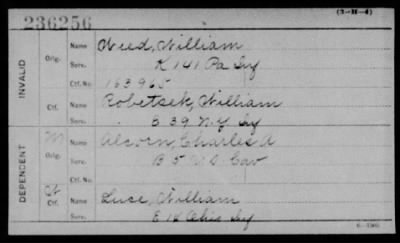 236256
(3-H-4)
INVALID
Orig.
Name Weed, William
Serv. K 141 Pa Inf
Ctf. No. 163965
Ctf.
Name Robetsek, William
Serv. E 39 N.Y. Inf
DEPENDENT
M
Orig.
Name Alcorn, Charles A
Serv. B 5 U S Cav
Ctf. No.
Ctf.
Name Luce, William
Serv. E 18 Ohio Inf